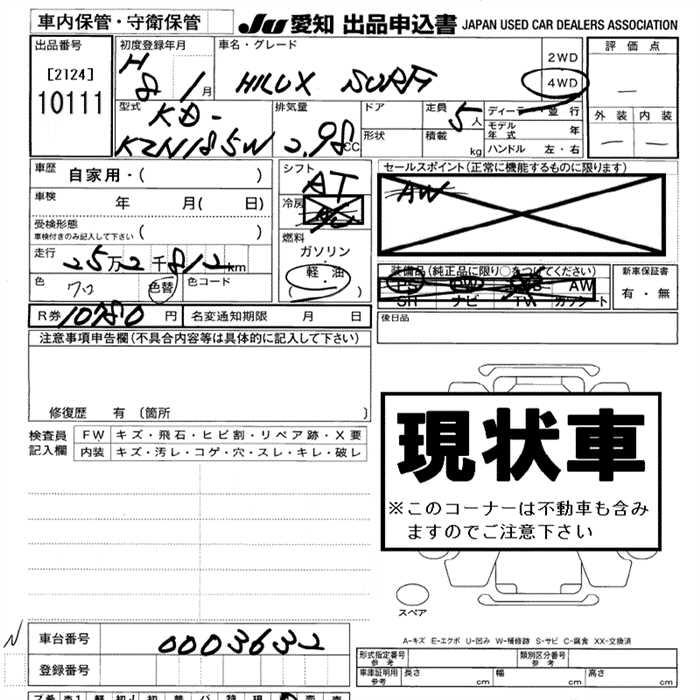 車内保管・守衛保管
JU 愛知 出品申込書 JAPAN USED CAR DEALERS ASSOCIATION
出品番号
[2124]
10111
初度登録年月
H 8 1月
車名・グレード
HILUX SURF
2WD
4WD
評価点
外装 内装
型式
KD-
KZN185W
排気量
2.98cc
ドア
形状
定員
5人
積載 kg
ディーラー・並行
モデル年式 年
ハンドル 左・右
車歴 自家用・( )
車検 年 月( 日)
受検形態
車検付きのみ記入して下さい ( )
走行 25万2千812km
色 クロ 色替 色コード
シフト AT
冷房 AC
燃料
ガソリン
軽・油
( )
セールスポイント(正常に機能するものに限ります)
AW
装備品(純正品に限り○をつけてください)
PS PW AW
SR ナビ TV カセット
新車保証書
有・無
R券 10780円 名変通知期限 月 日
後日品
注意事項申告欄(不具合内容等は具体的に記入して下さい)
修復歴 有 [箇所 ]
検査員記入欄
FW キズ・飛石・ヒビ割・リペア跡・X要
内装 キズ・汚レ・コゲ・穴・スレ・キレ・破レ
現状車
※このコーナーは不動車も含み
ますのでご注意下さい
スペア
A-キズ E-エクボ U-凹み W-補修跡 S-サビ C-腐食 XX-交換済
N
車台番号 0003632
登録番号
形式指定番号 参考
類別区分番号 参考
車庫証明用 参考 長さ cm 幅 cm 高さ cm